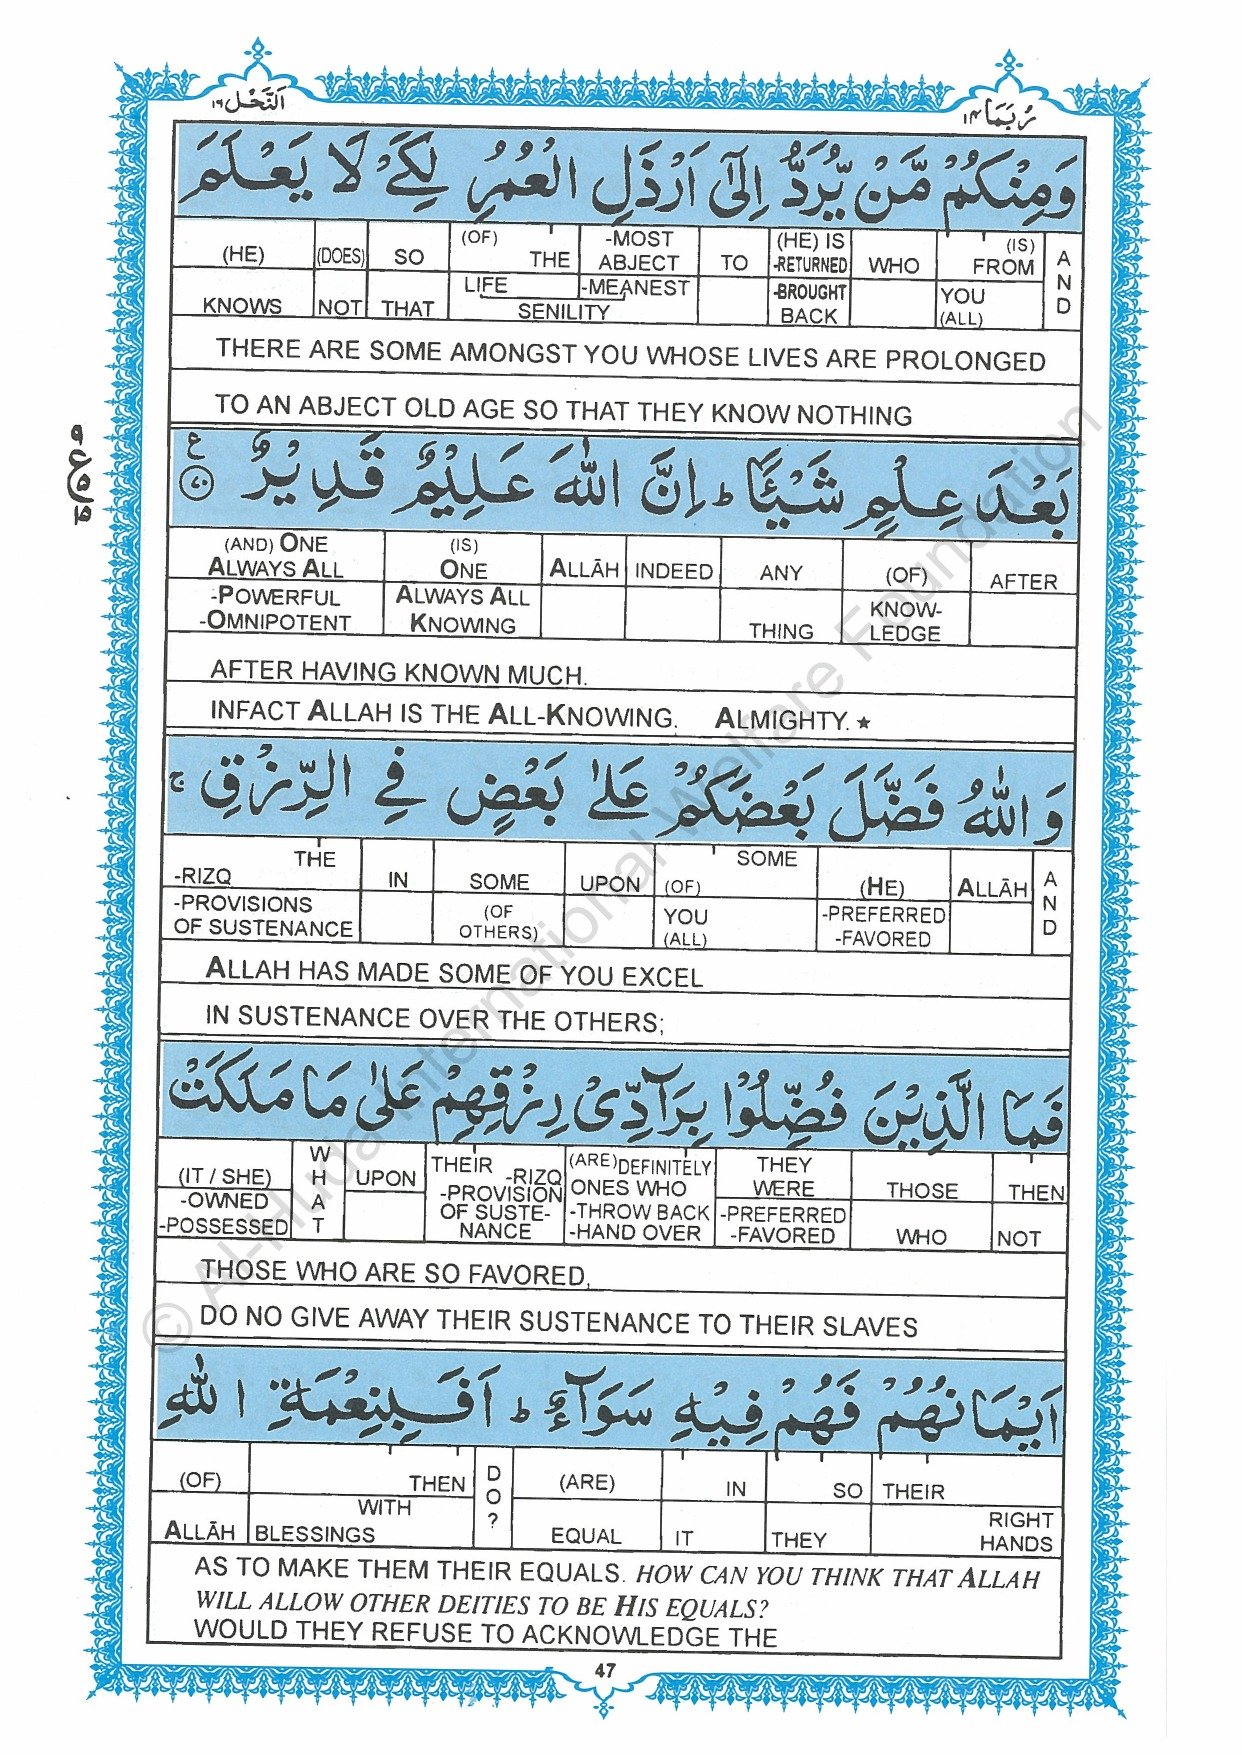 النَّحْل ١٦
رُبَمَا ١٤
وَمِنْكُمْ مَّنْ يُّرَدُّ اِلٰٓى اَرْذَلِ الْعُمُرِ لِكَىْ لَا يَعْلَمَ
(HE) (DOES) SO (OF) THE -MOST ABJECT TO (HE) IS -RETURNED WHO (IS) FROM AND
KNOWS NOT THAT LIFE -MEANEST -BROUGHT BACK YOU (ALL)
SENILITY
THERE ARE SOME AMONGST YOU WHOSE LIVES ARE PROLONGED
TO AN ABJECT OLD AGE SO THAT THEY KNOW NOTHING
بَعْدَ عِلْمٍ شَيْئًا ط اِنَّ اللّٰهَ عَلِيْمٌ قَدِيْرٌ ٧٠ ع
(AND) ONE ALWAYS ALL (IS) ONE ALLĀH INDEED ANY (OF) AFTER
-POWERFUL -OMNIPOTENT ALWAYS ALL KNOWING THING KNOW-LEDGE
AFTER HAVING KNOWN MUCH.
INFACT ALLAH IS THE ALL-KNOWING, ALMIGHTY.★
وَاللّٰهُ فَضَّلَ بَعْضَكُمْ عَلٰى بَعْضٍ فِى الرِّزْقِ ج
THE -RIZQ IN SOME UPON SOME (OF) (HE) ALLĀH AND
-PROVISIONS OF SUSTENANCE (OF OTHERS) YOU (ALL) -PREFERRED -FAVORED
ALLAH HAS MADE SOME OF YOU EXCEL
IN SUSTENANCE OVER THE OTHERS;
فَمَا الَّذِيْنَ فُضِّلُوْا بِرَآدِّىْ رِزْقِهِمْ عَلٰى مَا مَلَكَتْ
(IT / SHE) WHAT UPON THEIR -RIZQ (ARE) DEFINITELY ONES WHO THEY WERE THOSE THEN
-OWNED -POSSESSED -PROVISION OF SUSTE-NANCE -THROW BACK -HAND OVER -PREFERRED -FAVORED WHO NOT
THOSE WHO ARE SO FAVORED,
DO NO GIVE AWAY THEIR SUSTENANCE TO THEIR SLAVES
اَيْمَانُهُمْ فَهُمْ فِيْهِ سَوَآءٌ ط اَفَبِنِعْمَةِ اللّٰهِ
(OF) THEN DO? (ARE) IN SO THEIR
ALLĀH WITH BLESSINGS EQUAL IT THEY RIGHT HANDS
AS TO MAKE THEM THEIR EQUALS. HOW CAN YOU THINK THAT ALLAH
WILL ALLOW OTHER DEITIES TO BE HIS EQUALS?
WOULD THEY REFUSE TO ACKNOWLEDGE THE
47
© Al-Huda International Welfare Foundation